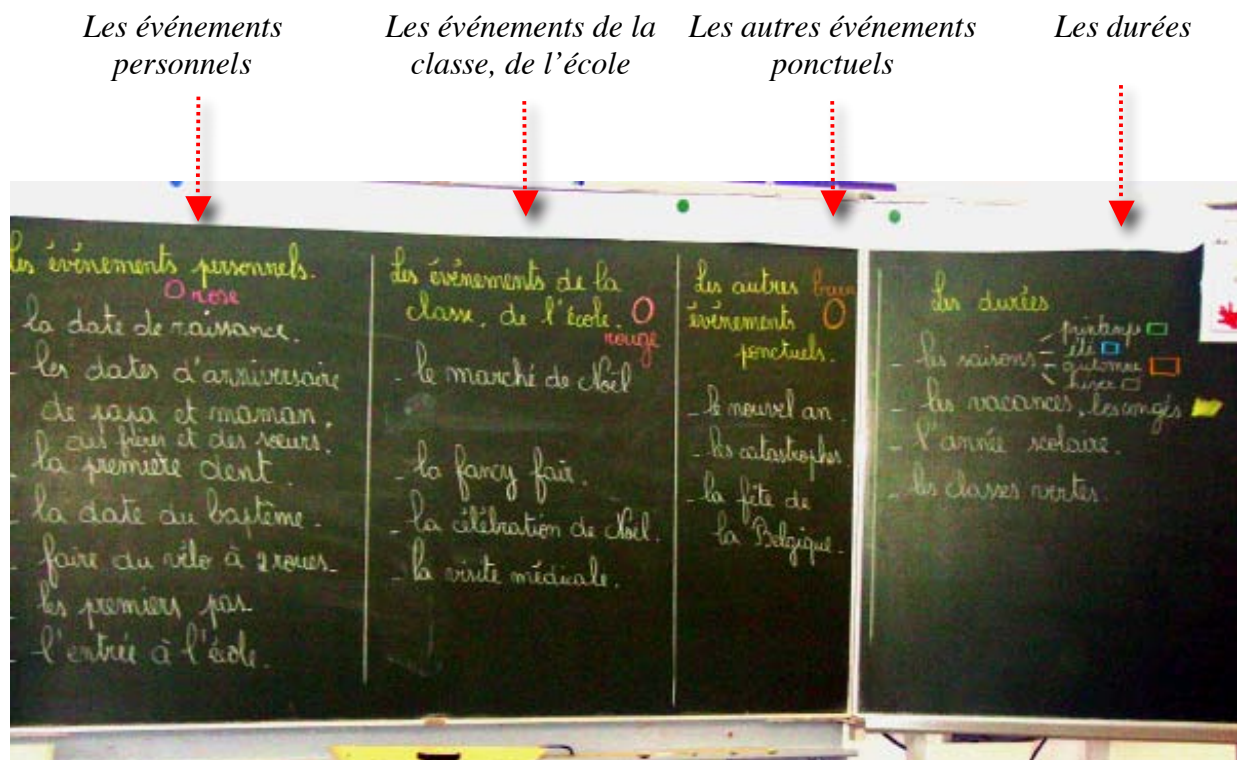 Les événements
personnels
Les événements de la
classe, de l'école
Les autres événements
ponctuels
Les durées
Les événements personnels.
O rose
la date de naissance.
- les dates d'anniversaire
de papa et maman,
des frères et des sœurs.
- la première dent.
- la date du baptême.
- faire du vélo à 2 roues.
- les premiers pas
- l'entrée à l'école.
Les événements de la
classe, de l'école. O
rouge
- le marché de Noël
- la fancy fair.
- la célébration de Noël.
- la visite médicale.
Les autres brun
événements O
ponctuels.
- le nouvel an.
- les catastrophes.
- la fête de
la Belgique.
Les durées
printemps
- les saisons - été
- automne
hiver
- les vacances, les congés
- l'année scolaire.
- les classes vertes.